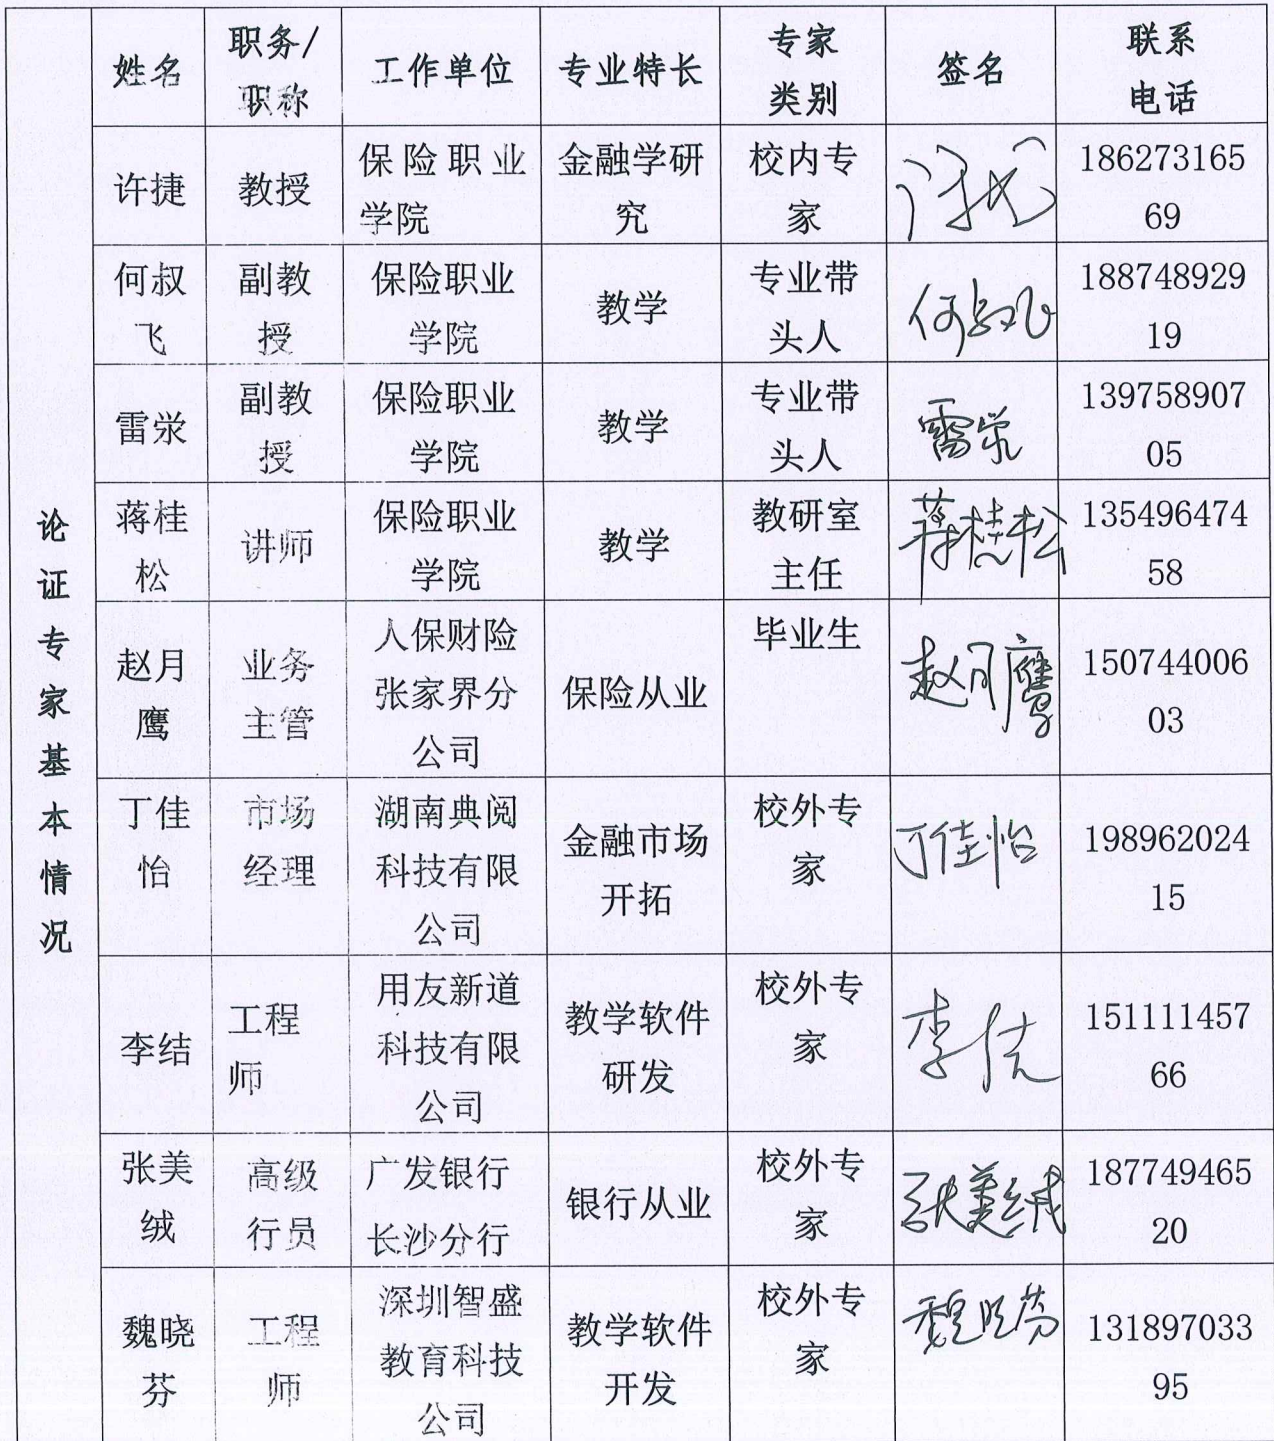 论证专家基本情况
姓名
职务/
职称
工作单位
专业特长
专家
类别
签名
联系
电话
许捷
教授
保险职业
学院
金融学研
究
校内专
家
许捷
186273165
69
何叔
飞
副教
授
保险职业
学院
教学
专业带
头人
何叔飞
188748929
19
雷泶
副教
授
保险职业
学院
教学
专业带
头人
雷泶
139758907
05
蒋桂
松
讲师
保险职业
学院
教学
教研室
主任
蒋桂松
135496474
58
赵月
鹰
业务
主管
人保财险
张家界分
公司
保险从业
毕业生
赵月鹰
150744006
03
丁佳
怡
市场
经理
湖南典阅
科技有限
公司
金融市场
开拓
校外专
家
丁佳怡
198962024
15
李结
工程
师
用友新道
科技有限
公司
教学软件
研发
校外专
家
李结
151111457
66
张美
绒
高级
行员
广发银行
长沙分行
银行从业
校外专
家
张美绒
187749465
20
魏晓
芬
工程
师
深圳智盛
教育科技
公司
教学软件
开发
校外专
家
魏晓芬
131897033
95